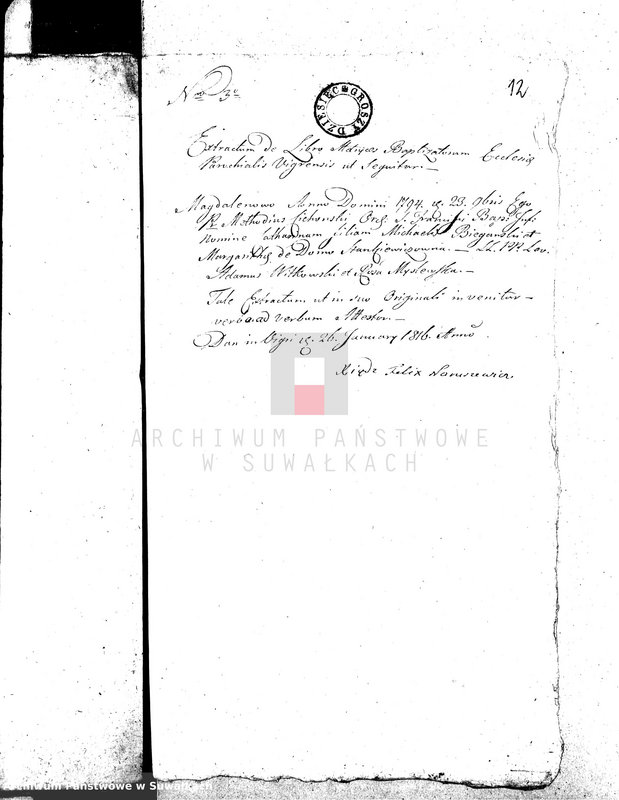 Nro 3º
12
DZIESIĘĆ GROSZY
Extractum de Libro Baptizatorum Ecclesia
Parochialis Vigrensis ut Sequitur.—
Magdalenowo Anno Domini 1794. 23. 9bris Ego
Methodius Cichorski Ord. S.
Nomine filiam Michaelis Bieganski et
Margaritha de Domo Stankiewiczowna.— LL. PP. Lev.
Adamus Witkowski et Rosa Myslewska.—
Tale Extractum ut in suo Originali invenitur—
verbo ad verbum Attestor.—
Dan in Vigri 26. January 1816. Anno.
Xiądz Felix Naruszewicz.
ARCHIWUM PAŃSTWOWE
W SUWAŁKACH
Archiwum Państwowe w Suwałkach